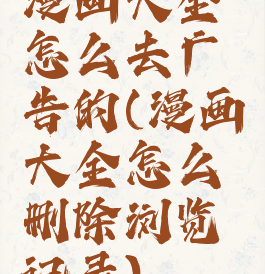 漫画大全
怎么去广
告的(漫画
大全怎么
删除浏览
记录)